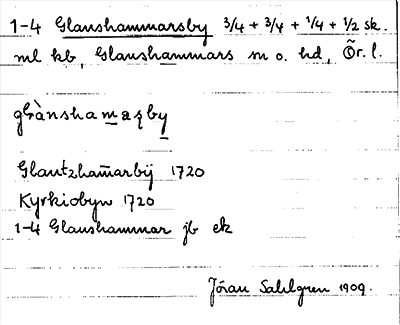 1-4 Glanshammarsby 3/4 + 3/4 + 1/4 + 1/2 sk.
ml kb, Glanshammars sn o. hd, Ör. l.
Glantzham̄arbÿ 1720
Kyrkiobyn 1720
1-4 Glanshammar jb ek
Jöran Sahlgren 1909.